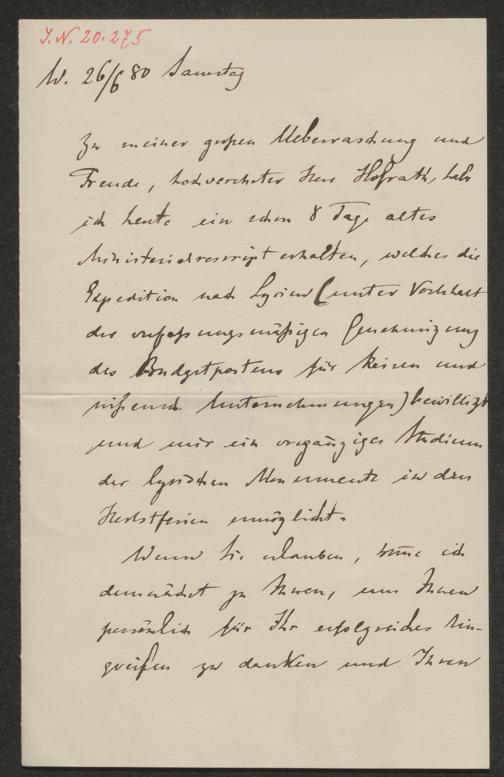 J.N. 20.275
W. 26/6 80 Samstag
Zu meiner großen Ueberraschung und
Freude, hochverehrter Herr Hofrath, habe
ich heute ein schon 8 Tage altes
Ministerialrescript erhalten, welches die
Expedition nach Lycien (unter Vorbehalt
der verfassungsmäßigen Genehmigung
des Budgetpostens für Reisen und
wissensch. Unternehmungen) bewilligt
und mir ein vorgängiges Studium
der lycischen Monumente in den
Herbstferien ermöglicht.
Wenn Sie erlauben, komme ich
demnächst zu Ihnen, um Ihnen
persönlich für Ihr erfolgreiches Ein-
greifen zu danken und Ihnen